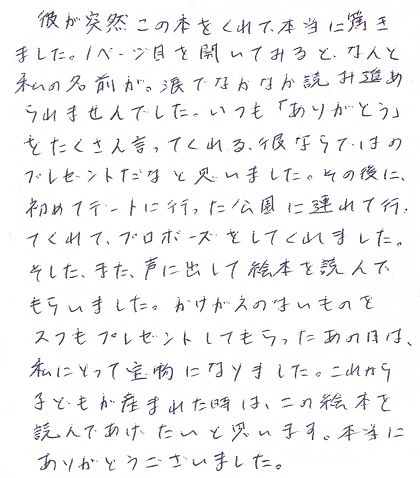 彼が突然この本をくれて、本当に驚き
ました。1ページ目を開いてみると、なんと
私の名前が。涙でなかなか読み進め
られませんでした。いつも「ありがとう」
をたくさん言ってくれる、彼ならではの
プレゼントだなと思いました。その後に、
初めてデートに行った公園に連れて行っ
てくれて、プロポーズをしてくれました。
そした、また、声に出して絵本を読んで
もらいました。かけがえのないものを
スつもプレゼントしてもらったあの日は、
私にとって宝物になりました。これから
子どもが産まれた時は、この絵本を
読んであげたいと思います。本当に
ありがとうございました。